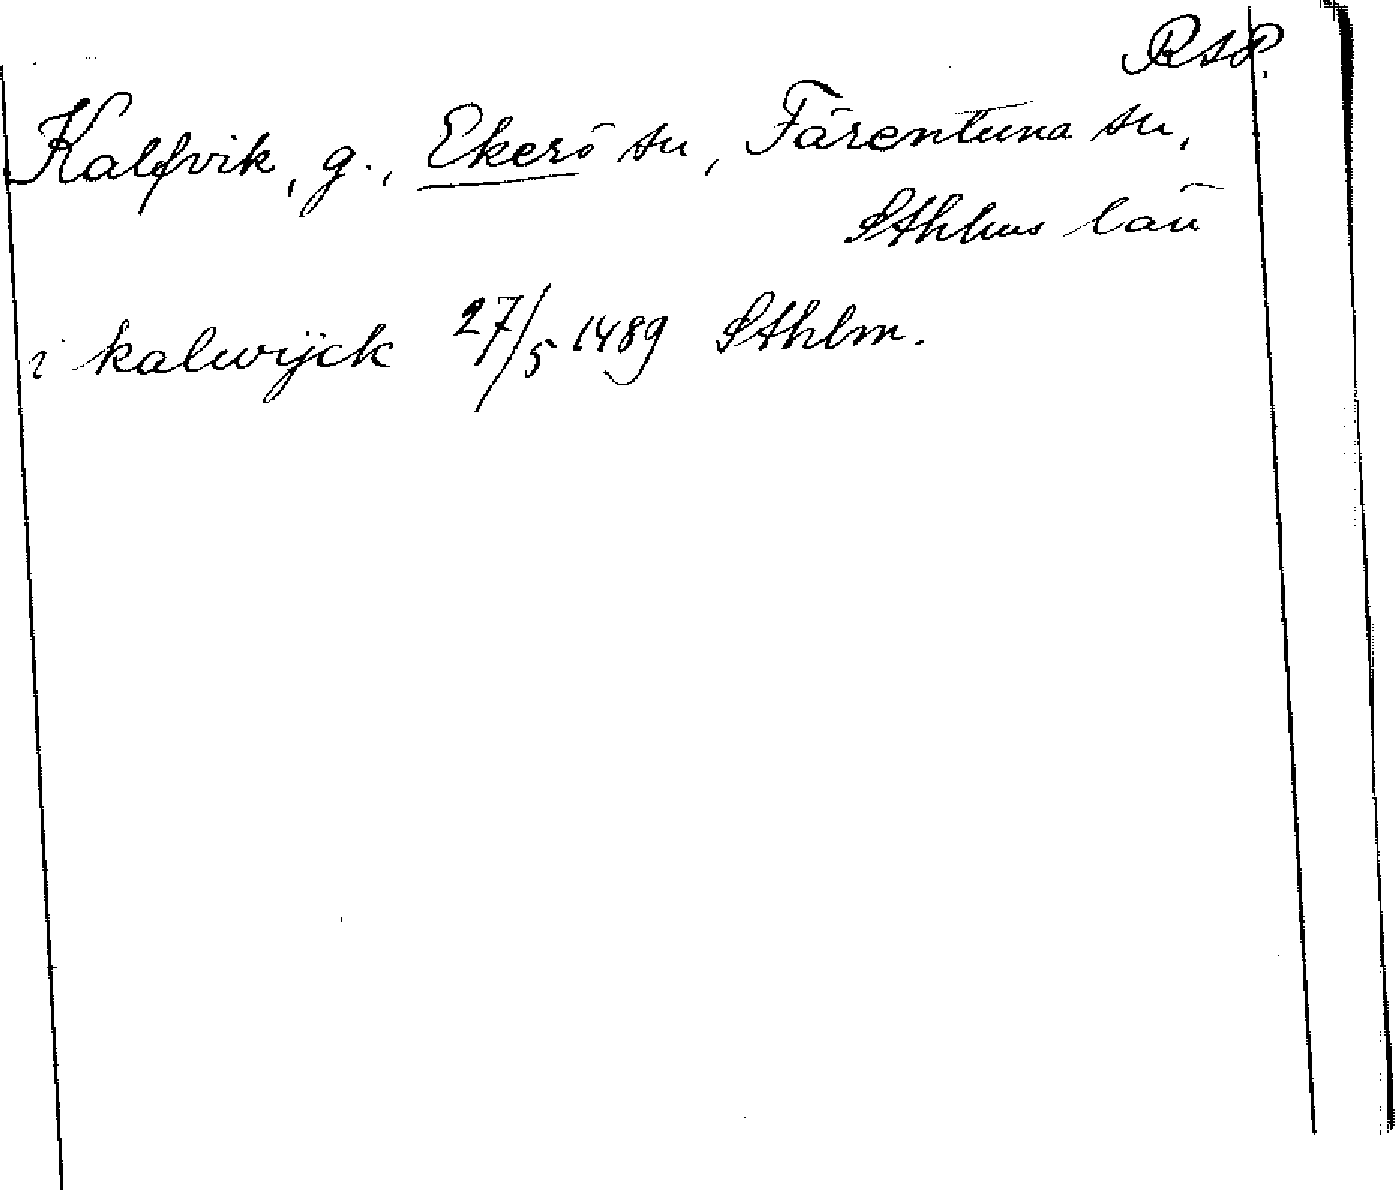 RAP.
Kalfvik, g., Ekerö sn, Färentuna sn,
Sthlms län
i kalwijck 27/5 1489 Sthlm.